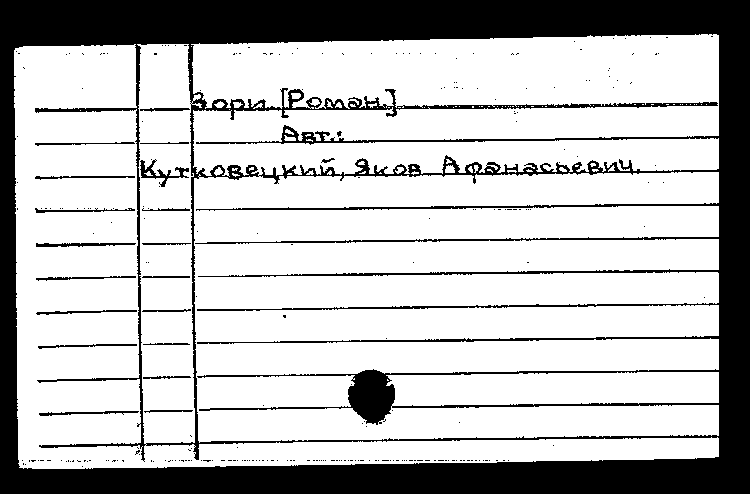 Зори [Роман.]
Авт.:
Кутковецкий, Яков Афанасьевич.